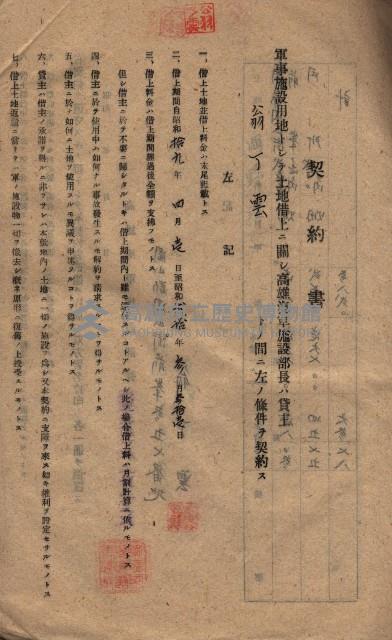 契約書
軍事施設用地トシテ土地借上ニ關シ高雄海軍施設部長ハ貸主
翁丁雲 間ニ左ノ條件ヲ契約ス
左記
一、借上土地並借上料金ハ末尾記載トス
二、借上期間自昭和拾九年四月壱日至昭和貳拾年參月參拾壱日
三、借上料金ハ借上期間經過後全額ヲ支拂フモノトス
但シ借主ニ於テ不要ニ歸シタルトキハ借上期間内ト雖モ返還スルコトアルベシ此ノ場合借上料ハ月割計算ニ依ルモノトス
四、借主ニ於テ使用中ハ如何ナル事故發生スルモ解約ヲ請求スルコトヲ得サルモノトス
五、借主ニ於テ如何ニ土地ヲ使用スルモ異議ヲ申立ツルコトヲ得サルモノトス
六、貸主ハ借主ノ承諾ヲ得ルニ非ラザレハ本敷地内ノ土地ニ一切ノ施設ヲ爲シ又本契約ニ支障ヲ來ス如キ權利ヲ設定セサルモノトス
七、借上土地返還ニ當リテハ軍ノ施設物一切ヲ撤去シ概ネ原形ニ復舊ノ上授受スルモノトス
高雄市立歷史博物館
KAOHSIUNG MUSEUM OF HISTORY